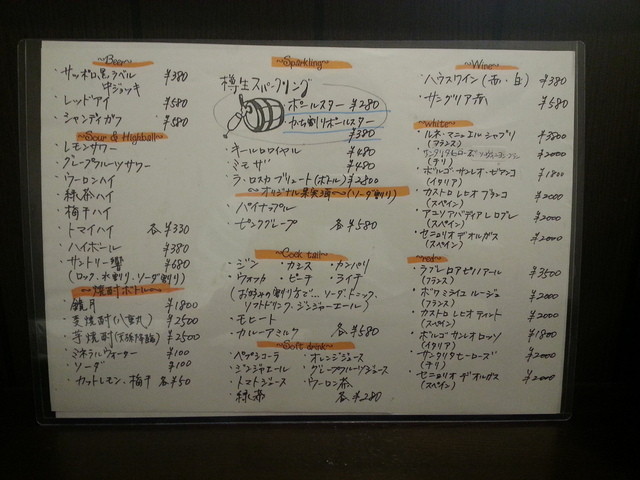 ~Beer~
・サッポロ黒ラベル 中ジョッキ ¥380
・レッドアイ ¥580
・シャンディガフ ¥580
~Sour & Highball~
・レモンサワー
・グレープフルーツサワー
・ウーロンハイ
・緑茶ハイ
・梅干ハイ
・トマトハイ 各¥330
・ハイボール ¥380
・サントリー響 ¥680
(ロック、水割り、ソーダ割り)
~焼酎ボトル~
・鏡月 ¥1800
・麦焼酎 ¥2500
・芋焼酎 ¥2500
・ミネラルウォーター ¥100
・ソーダ ¥100
・カットレモン、梅干 各¥50
~Sparkling~
樽生スパークリング
ポールスター ¥280
かち割りポールスター
¥380
・キールロワイヤル ¥480
・ミモザ ¥480
・ラ・ロスカ ブリュート(ボトル) ¥2800
~オリジナル果実酒~(ソーダ割り)
・パイナップル
・ピンクグレープ 各¥580
~Cock tail~
・ジン ・カシス ・カンパリ
・ウォッカ ・ピーチ ・ライチ
(お好みの割り方で…ソーダ、トニック、
ソフトドリンク、ジンジャーエール)
・モヒート
・カルーアミルク 各¥580
~Soft drink~
・ペプシコーラ ・オレンジジュース
・ジンジャエール ・グレープフルーツジュース
・トマトジュース ・ウーロン茶
・緑茶 各¥280
~Wine~
・ハウスワイン(赤・白) ¥380
・サングリア赤 ¥580
~white~
・ルネ・マニュエル シャブリ ¥3800
(フランス)
¥2000
(チリ)
・ボルゴ サンレオ・ビアンコ ¥1800
(イタリア)
・カストロ レセオ ブランコ ¥2000
(スペイン)
¥2000
(スペイン)
・セニョリオ デ オルガス ¥2000
(スペイン)
~red~
・ラブレロア ピノノアール ¥3500
(フランス)
・ボワ ミライユ ルージュ ¥2000
(フランス)
・カストロ レセオ ティント ¥2000
(スペイン)
・ボルゴ サンレオ ロッソ ¥1800
(イタリア)
・サンタリタ ヒーローズ ¥2000
(チリ)
・セニョリオ デ オルガス ¥2000
(スペイン)